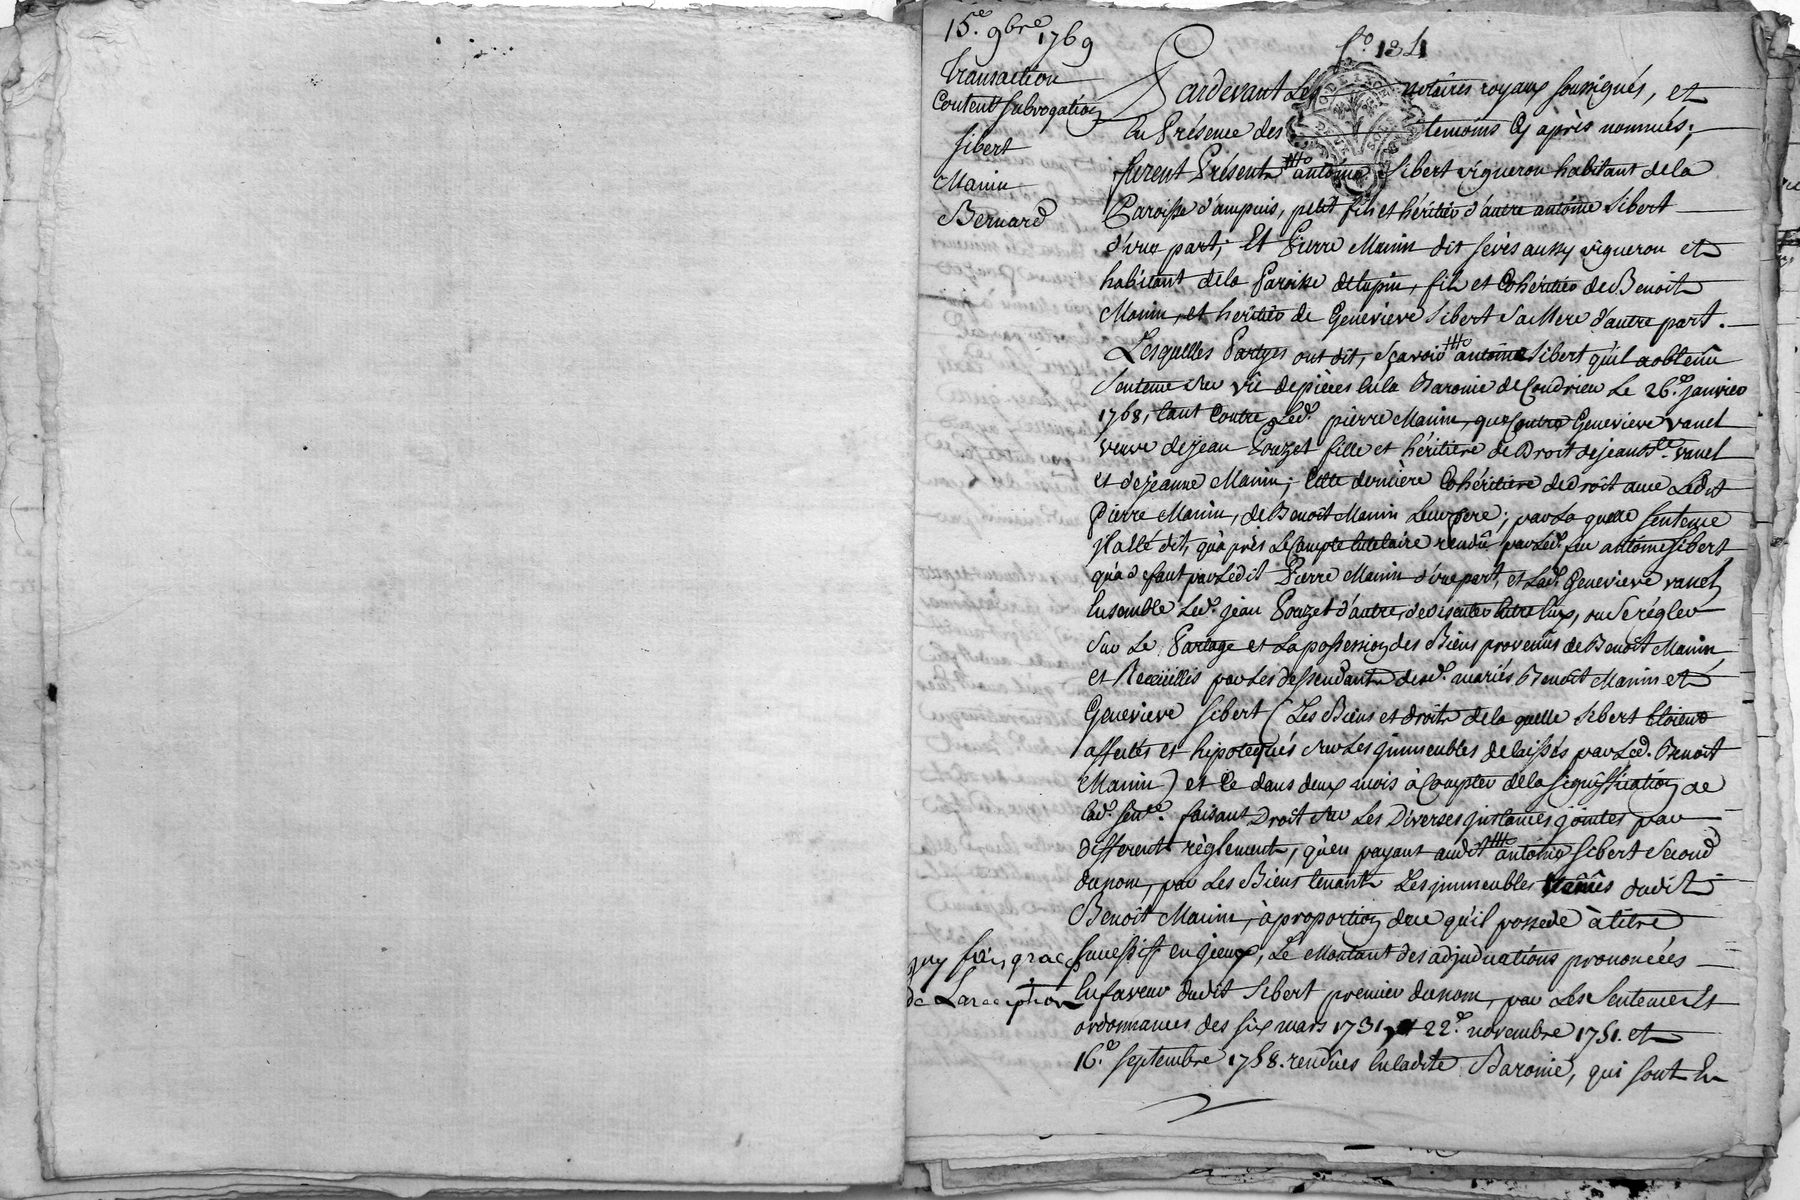 15.e 9bre 1769
Transaction
Contenant Subrogation
Sibert
Manin
Bernard
fo. 134
Pardevant Les notaires royaux soussignés, et
En Présence des temoins Cy après nommés;
furent Présents antoine Sibert vigneron habitant de la
Paroisse d'ampuis, petit fils et héritier d'autre antoine Sibert
d'une part; Et Pierre Manin dit aussy vigneron et
habitant de la Paroisse de tupin, fils et Cohéritier de Benoit
Manin, et héritier de Genevieve Sibert Sa Mere d'autre part.
Lesquelles Partyes ont dit, Sçavoir antoine Sibert qu'il a obtenu
Sentence Sur vû de pièces En la Baronie de Condrieu Le 26.e janvier
1768, tant Contre Led. pierre Manin, que Contre Genevieve vanel
veuve de jean Pouzet fille et héritière de Droit de jean vanel
et de jeanne Manin; Cette dernière Cohéritière de Droit avec Ledit
Pierre Manin, de Benoît Manin Leur Pere; par La quelle Sentence
Il a été dit, qu'après Le Compte tutelaire rendû par Led. feu antoine Sibert
qu'a defaut par Ledit Pierre Manin d'une part, et Lad. Genevieve vanel,
Ensemble Led. jean Pouzet d'autre, de discuter Entre Eux, ou Se régler
Sur Le Partage et La possession des Biens provenus de Benoît Manin
et Recüeillis par Les dessendants desd. mariés Benoît Manin et
Genevieve Sibert (Les Biens et droits de la quelle Sibert Etoient
affectés et hipotequés Sur Les jmmeubles delaissés par Led. Benoit
Manin) et Ce dans deux mois à Compter de la Signiffication de
lad. Sent.ce faisant Droit Sur Les Diverses jnstances jointes par
différents règlements, qu'en payant audit antoine Sibert Second
du nom, par Les Biens tenants Les jmmeubles dudit
Benoit Manin, à proportion de ce qu'il possede à titre
Successif en jceux, Le Montant des adjudications prononcées
En faveur dudit Sibert premier du nom, par Les Sentences Et
ordonnances des Six mars 1731, et 22.e novembre 1751. et
16.e Septembre 1758. rendües En ladite Baronie, qui sont En